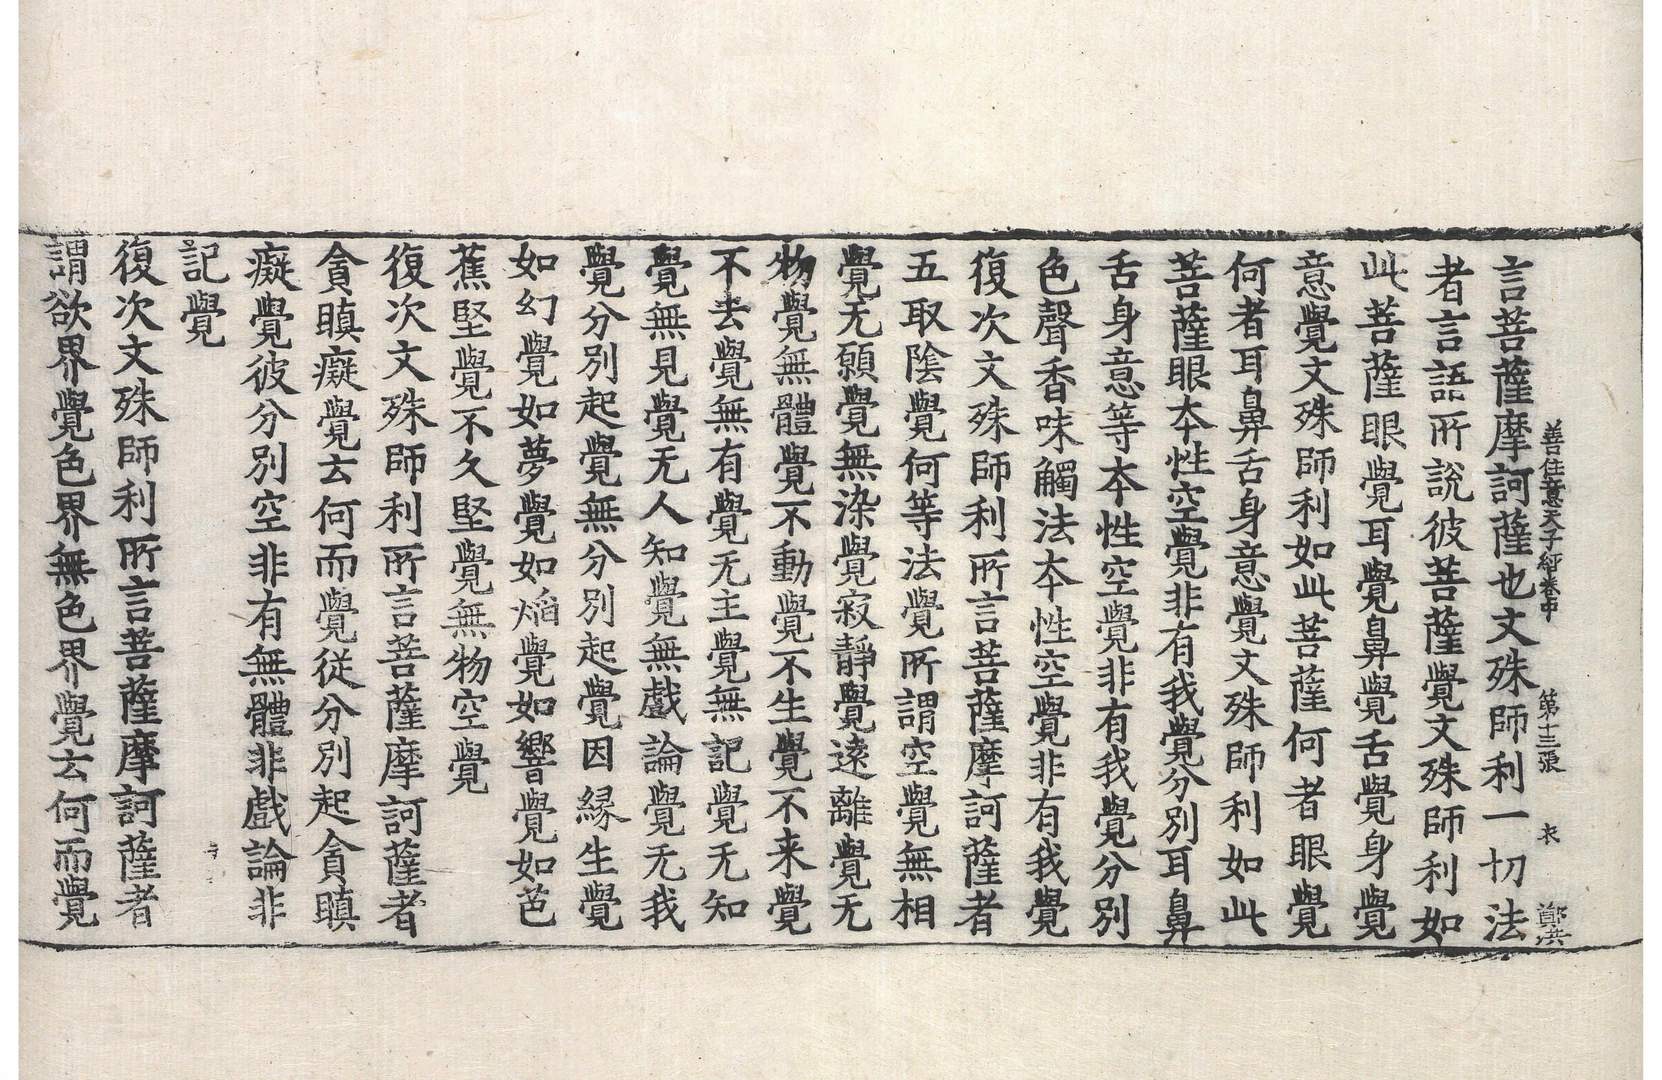 善住意天子經卷中 第十三張 衣 鄭洪
言菩薩摩訶薩也文殊師利一切法
者言語所說彼菩薩覺文殊師利如
此菩薩眼覺耳覺鼻覺舌覺身覺
意覺文殊師利如此菩薩何者眼覺
何者耳鼻舌身意覺文殊師利如此
菩薩眼本性空覺非有我覺分別耳鼻
舌身意等本性空覺非有我覺分別
色聲香味觸法本性空覺非有我覺
復次文殊師利所言菩薩摩訶薩者
五取陰覺何等法覺所謂空覺無相
覺无願覺無染覺寂靜覺遠離覺无
物覺無體覺不動覺不生覺不来覺
不去覺無有覺无主覺無記覺无知
覺無見覺无人知覺無戲論覺无我
覺分別起覺無分別起覺因緣生覺
如幻覺如夢覺如焰覺如響覺如芭
蕉堅覺不久堅覺無物空覺
復次文殊師利所言菩薩摩訶薩者
貪瞋癡覺云何而覺從分別起貪瞋
癡覺彼分別空非有無體非戲論非
記覺
復次文殊師利所言菩薩摩訶薩者
謂欲界覺色界無色界覺云何而覺